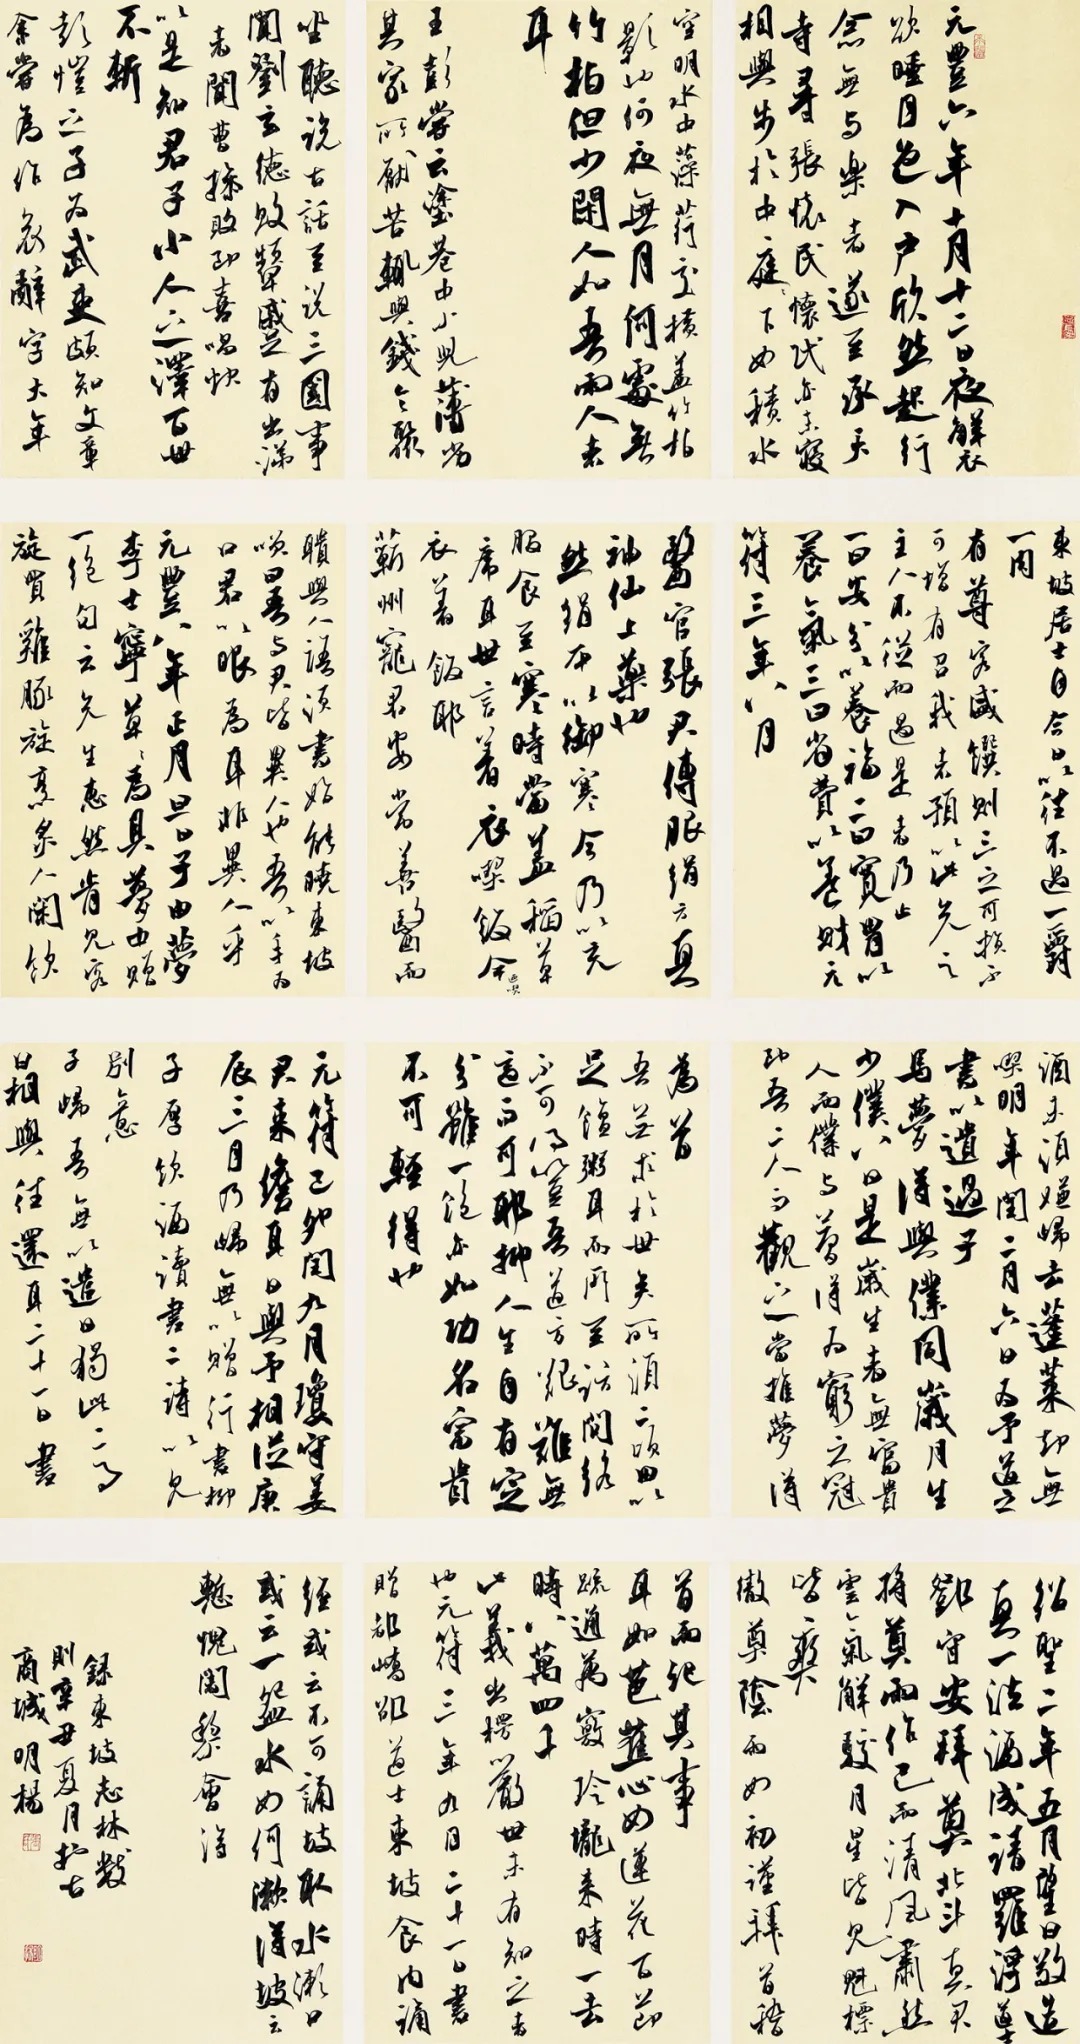 元豐六年十月十二日夜解衣
欲睡月色入戶欣然起行
念無与樂者遂至承天
寺尋張懷民懷民亦未寢
相與步於中庭下如積水
空明水中藻荇交橫蓋竹柏
影也何夜無月何處無
竹柏但少閑人如吾兩人者
耳
王彭嘗云塗巷中小兒薄劣
其家所厭苦輒與錢令聚
坐聽說古話至說三國事
聞劉玄德敗顰蹙有出涕
者聞曹操敗即喜唱快
以是知君子小人之澤百世
不斬
彭愷之子為武吏頗知文章
余嘗為作哀辭字大年
東坡居士自今日以往不過一爵
一肉
有尊客盛饌則三之可損不
可增有召我者預以此先之
主人不從而過是者乃止
一曰安分以養福二曰寬胃以
養氣三曰省費以養財元
符三年八月
醫官張君傳服絹方真
神仙上藥也
然絹本以御寒今乃以充
服食至寒時當蓋稻草
席耳世言著衣喫飯今
衣著飯耶
蘄州龐君安常善醫而
聵與人語須書始能曉東坡
笑曰吾与君皆異人也吾以手為
口君以眼為耳非異人乎
元豐八年正月旦日子由夢
李士寧草草為具夢中贈
一絕句云先生惠然肯見客
旋買雞豚旋烹炙人閑飲
酒未須嫌歸去蓬萊却無
喫明年閏二月六日為予道之
書以遺過子
馬夢得與僕同歲月生
少僕八日是歲生者無富貴
人而僕与夢得為窮之冠
即吾二人而觀之當推夢得
為首
吾無求於世矣所須二頃田以
足饘粥耳而所至訪問終
不可得豈吾道方艱難無
適而可耶抑人生自有定
分雖一飽亦如功名富貴
不可輕得也
元符己卯閏九月瓊守姜
君來儋耳日與予相從庚
辰三月乃歸無以贈行書柳
子厚飲酒讀書二詩以見
別意
子歸吾無以遣日獨此二事
日相與往還耳二十一日書
紹聖二年五月望日敬造
真一法酒成請羅浮道士
鄧守安拜奠北斗真君
將奠雨作已而清風肅然
雲氣解駁月星皆見魁標
皆爽
徹奠陰雨如初謹拜首稽
首而紀其事
耳如芭蕉心如蓮花百節
疏通萬竅玲瓏來時一去
時八萬四千
此義出楞嚴世未有知之者
也元符三年九月二十一日書
贈都嶠邵道士東坡食肉誦
經或云不可誦坡取水漱口
或云一盌水如何漱得坡云
慙愧闍黎會得
錄東坡志林數
則辛丑夏月於古
商城明楊